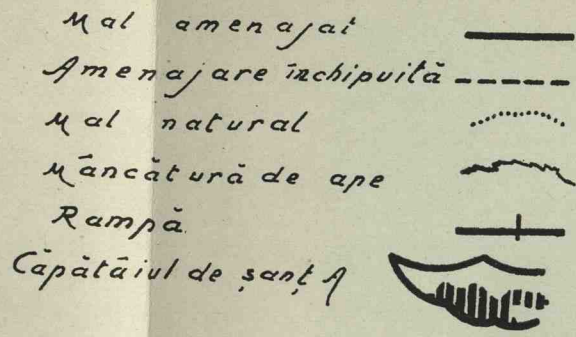 Mal amenajat
Amenajare închipuită
Mal natural
Mâncătură de ape
Rampă
Căpătâiul de șanț A